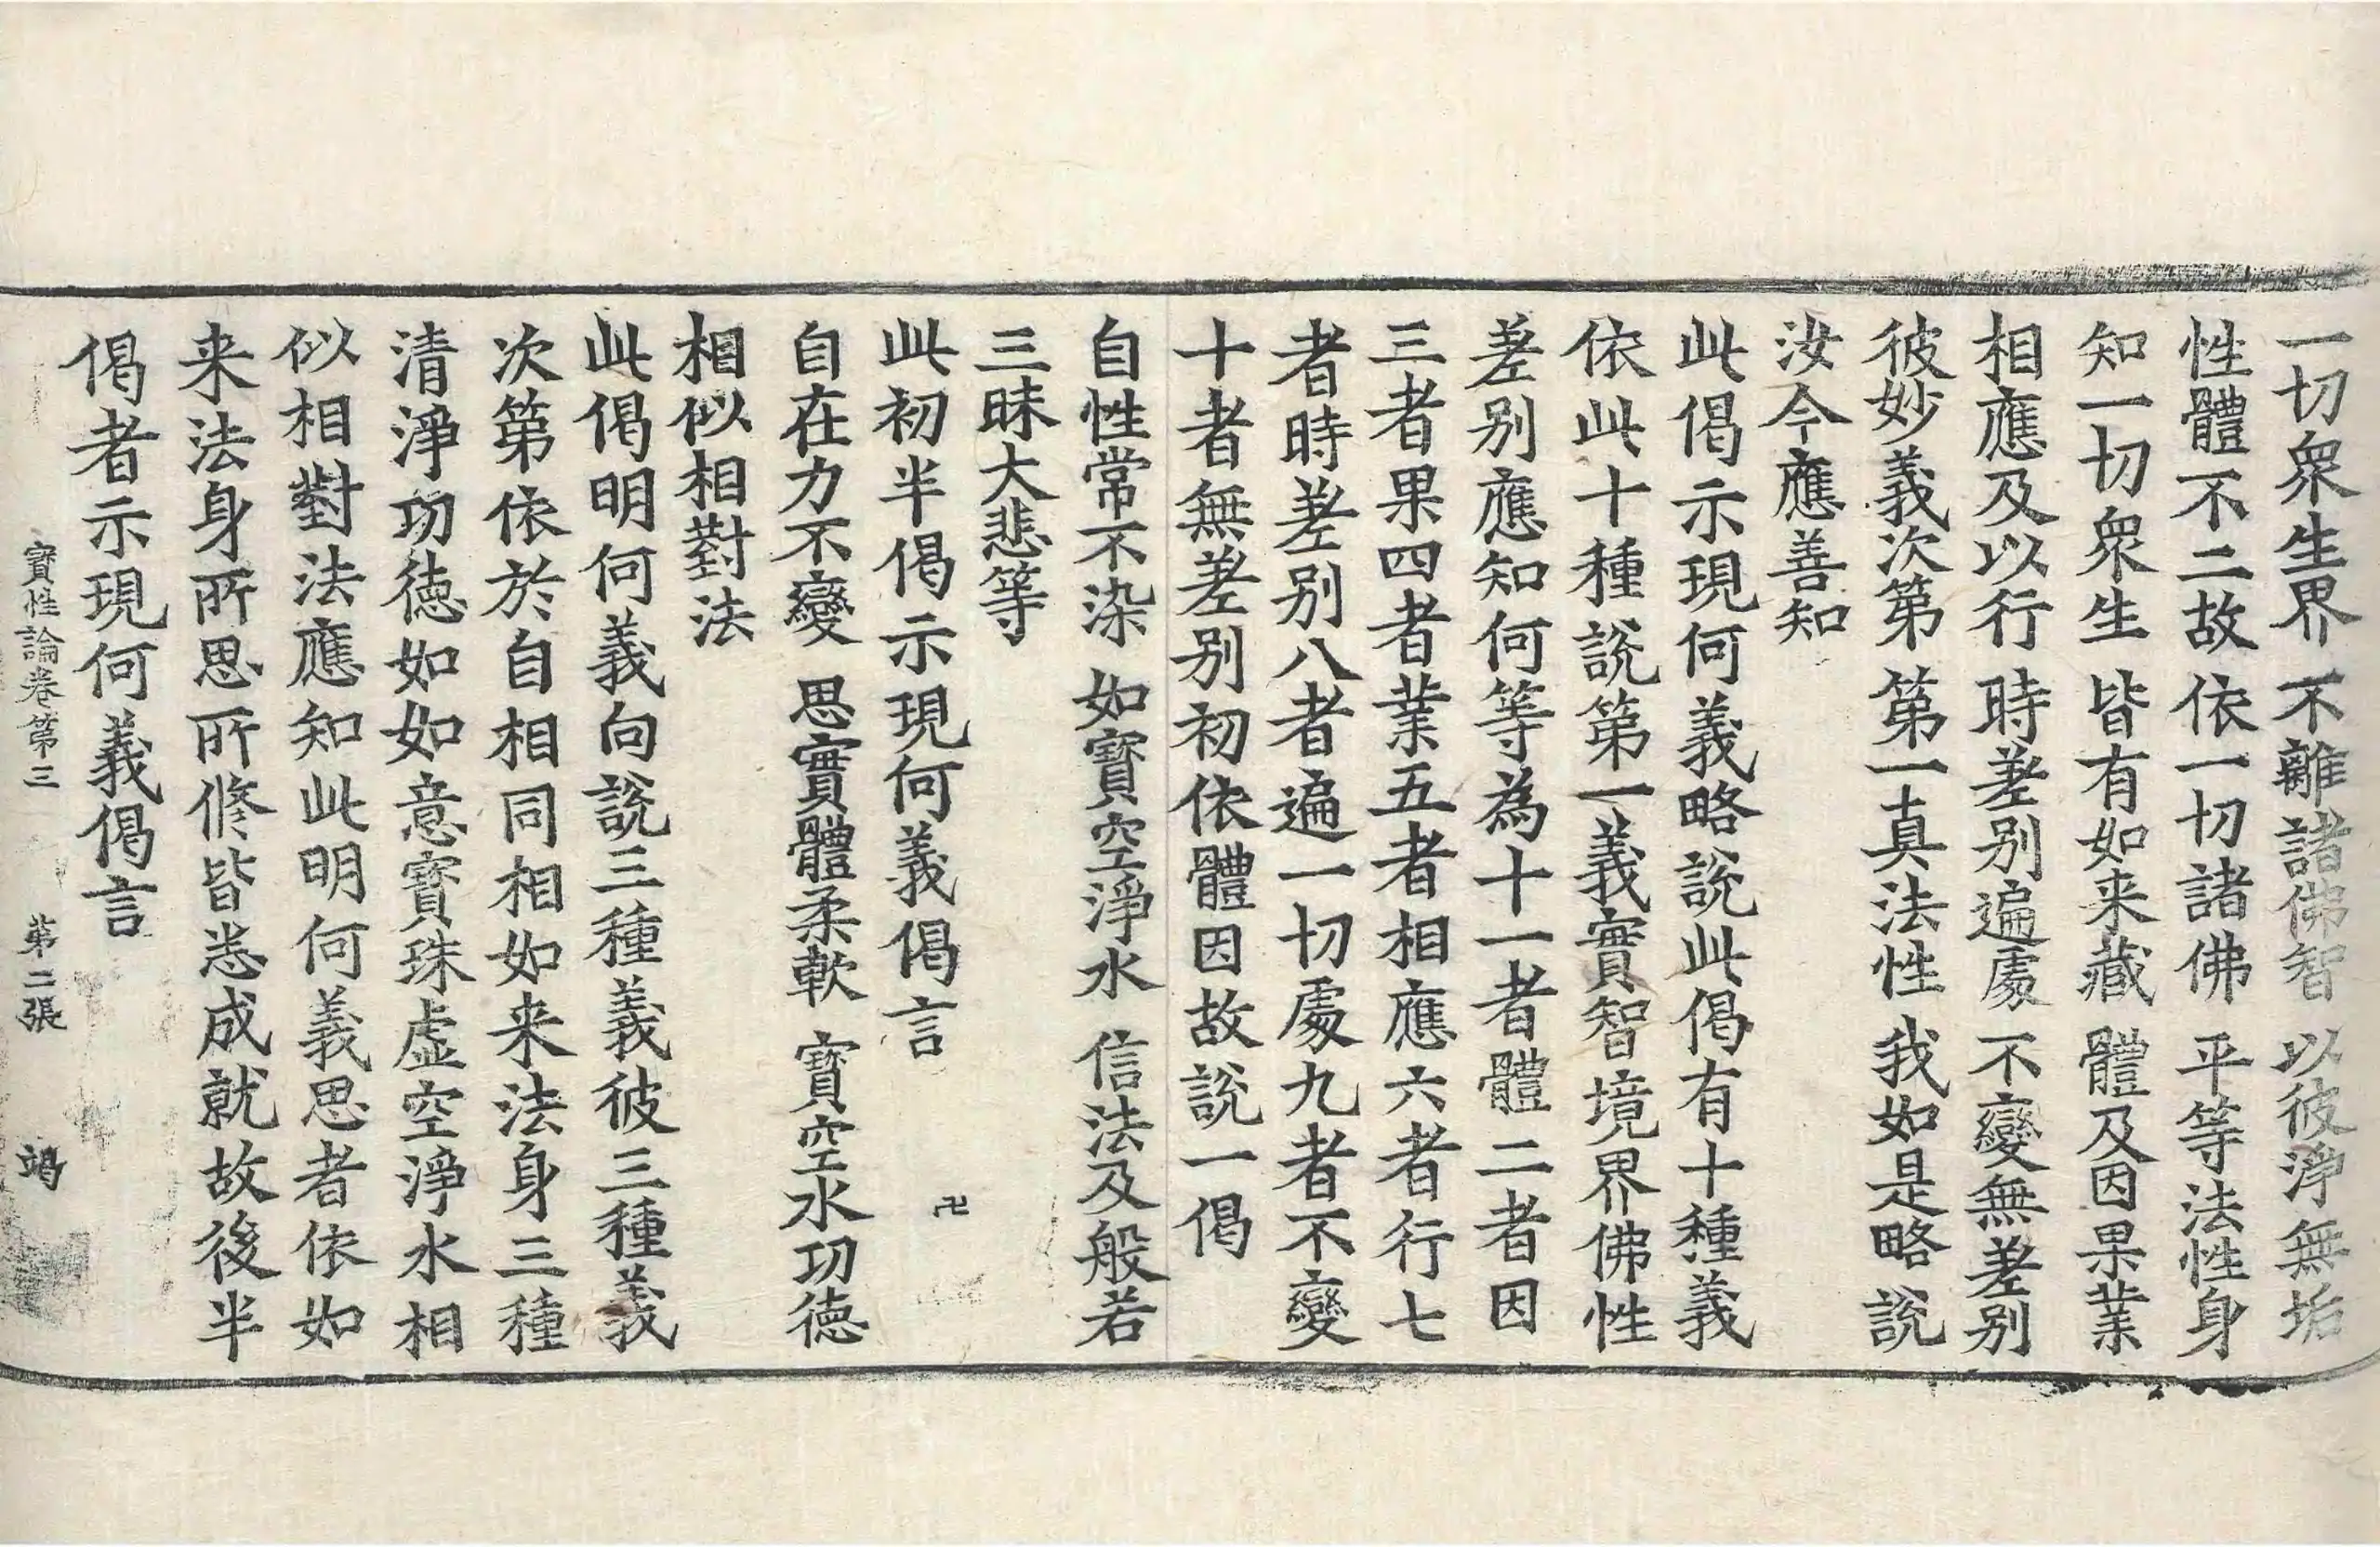 一切衆生界　不離諸佛智　以彼淨無垢
性體不二故　依一切諸佛　平等法性身
知一切衆生　皆有如来藏　體及因果業
相應及以行　時差别遍處　不變無差别
彼妙義次第　第一真法性　我如是略説
汝今應善知
此偈示現何義略説此偈有十種義
依此十種説第一義實智境界佛性
差别應知何等為十一者體二者因
三者果四者業五者相應六者行七
者時差别八者遍一切處九者不變
十者無差别初依體因故説一偈
自性常不染　如寶空淨水　信法及般若
三昧大悲等
此初半偈示現何義偈言　卍
自在力不變　思實體柔軟　寶空水功徳
相似相對法
此偈明何義向説三種義彼三種義
次第依於自相同相如来法身三種
清淨功徳如如意寶珠虚空淨水相
似相對法應知此明何義思者依如
来法身所思所修皆悉成就故後半
偈者示現何義偈言
寶性論卷第三　第二張　竭